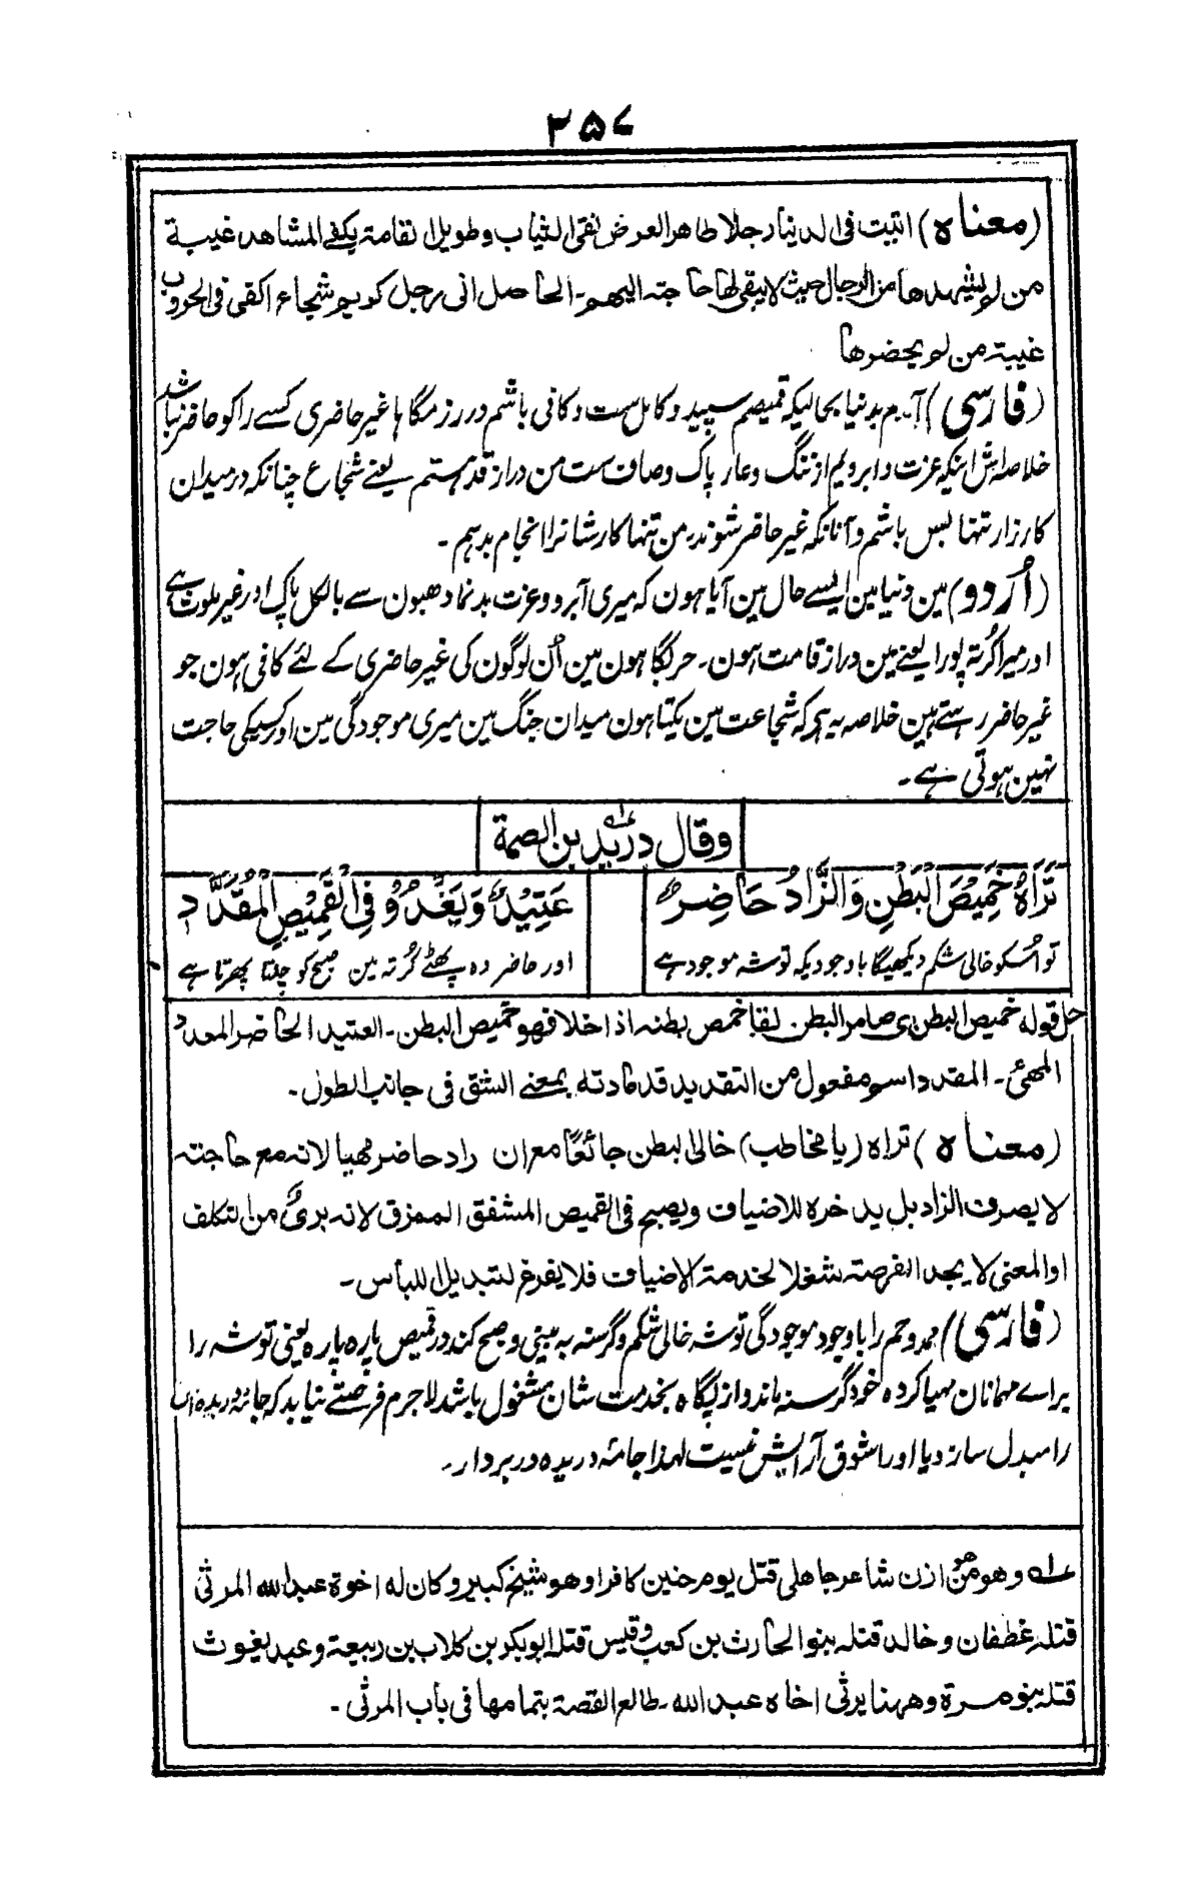 ۳۵۷
(معناہ) اتیت فی الدنیا رجلا طاهر العرض نقی الثیاب وطویل القامة یکفے المشاهد غیبة
من لم یشهدها من الرجال حیث لا یبقی لها حاجته الیهم۔ الحاصل انی رجل کریم شجاع اکفی فی الحروب
غیبة من لم یحضرها
(فارسی) آمدم بدنیا بحالیکہ قمیصم سپید و کامل ست و کافی باشم در رزمگاہا غیر حاضری کسے را کو حاضر نباشد
خلاصہ اش اینکہ عزت و ابرویم از ننگ و عار پاک و صاف ست من دراز قد ہستم یعنے شجاع چنانکہ در میدان
کارزار تنہا بس باشم و آنانکہ غیر حاضر شوند من تنہا کار شانرا انجام بدہم۔
(اُردو) مین دنیا مین ایسے حال مین آیا ہون کہ میری آبرو و عزت بدنما دھبون سے بالکل پاک اور غیر ملوث ہے
اور میرا کُرتہ پورا یعنے مین دراز قامت ہون۔ حربگا ہون مین اُن لوگون کی غیر حاضری کے لئے کافی ہون جو
غیر حاضر رہتے ہین خلاصہ یہ ہے کہ شجاعت مین یکتا ہون میدان جنگ مین میری موجودگی مین اور کسیکی حاجت
نہین ہوتی ہے۔
وقال درید بن الصمة
تَرَاہُ خَمِیْصَ الْبَطْنِ وَالزَّادُ حَاضِرٌ عَتِیْدٌ وَیَغْدُوْ فِی الْقَمِیْصِ الْمُقَدَّدِ
تو اُسکو خالی شکم دیکھیگا باوجودیکہ توشہ موجود ہے اور حاضر وہ پھٹے کُرتہ مین صبح کو چلتا پھرتا ہے
حل قولہ خمیص البطن ی ضامر البطن یقا خمص بطنه اذا خلا فهو خمیص البطن۔ العتید الحاضر المعد و
المهیئ۔ المقدد اسم مفعول من التقدید قد مادته بمعنے الشق فی جانب الطول۔
(معناہ) تراہ (یا مخاطب) خالی البطن جائعًا مع ان زاد حاضر مهیا لانه مع حاجته
لا یصرف الزاد بل یدخره للاضیاف ویصبح فی القمیص المشقق الممزق لانه بریٔ من التکلف
اوالمعنی لا یجد الفرصة شغلا لخدمة الاضیاف فلا یفرغ لتبدیل اللباس۔
(فارسی) ممدوحم را باوجود موجودگی توشہ خالی شکم و گرسنہ بہ بینی و صبح کند در قمیص پارہ پارہ یعنی توشہ را
براے مہمانان مہیا کردہ خود گرسنہ ماند و از پگاہ بخدمت شان مشغول باشد لا جرم فرصتے نیابد کہ جامۂ دریدہ
را مبدل سازد یا اورا شوق آرایش نیست لہذا جامۂ دریدہ در بردار۔
لہ وهو من هوازن شاعر جاهلی قتل یوم حنین کافرا وهو شیخ کبیر وکان له اخوة عبدالله المرثی
قتله غطفان وخالد قتله بنو الحارث بن کعب وقیس قتله ابوبکر بن کلاب بن ربیعة وعبد یغوث
قتله بنو مرة وههنا یرثی اخاه عبدالله۔ طالع القصة بتمامها فی باب المرثی۔